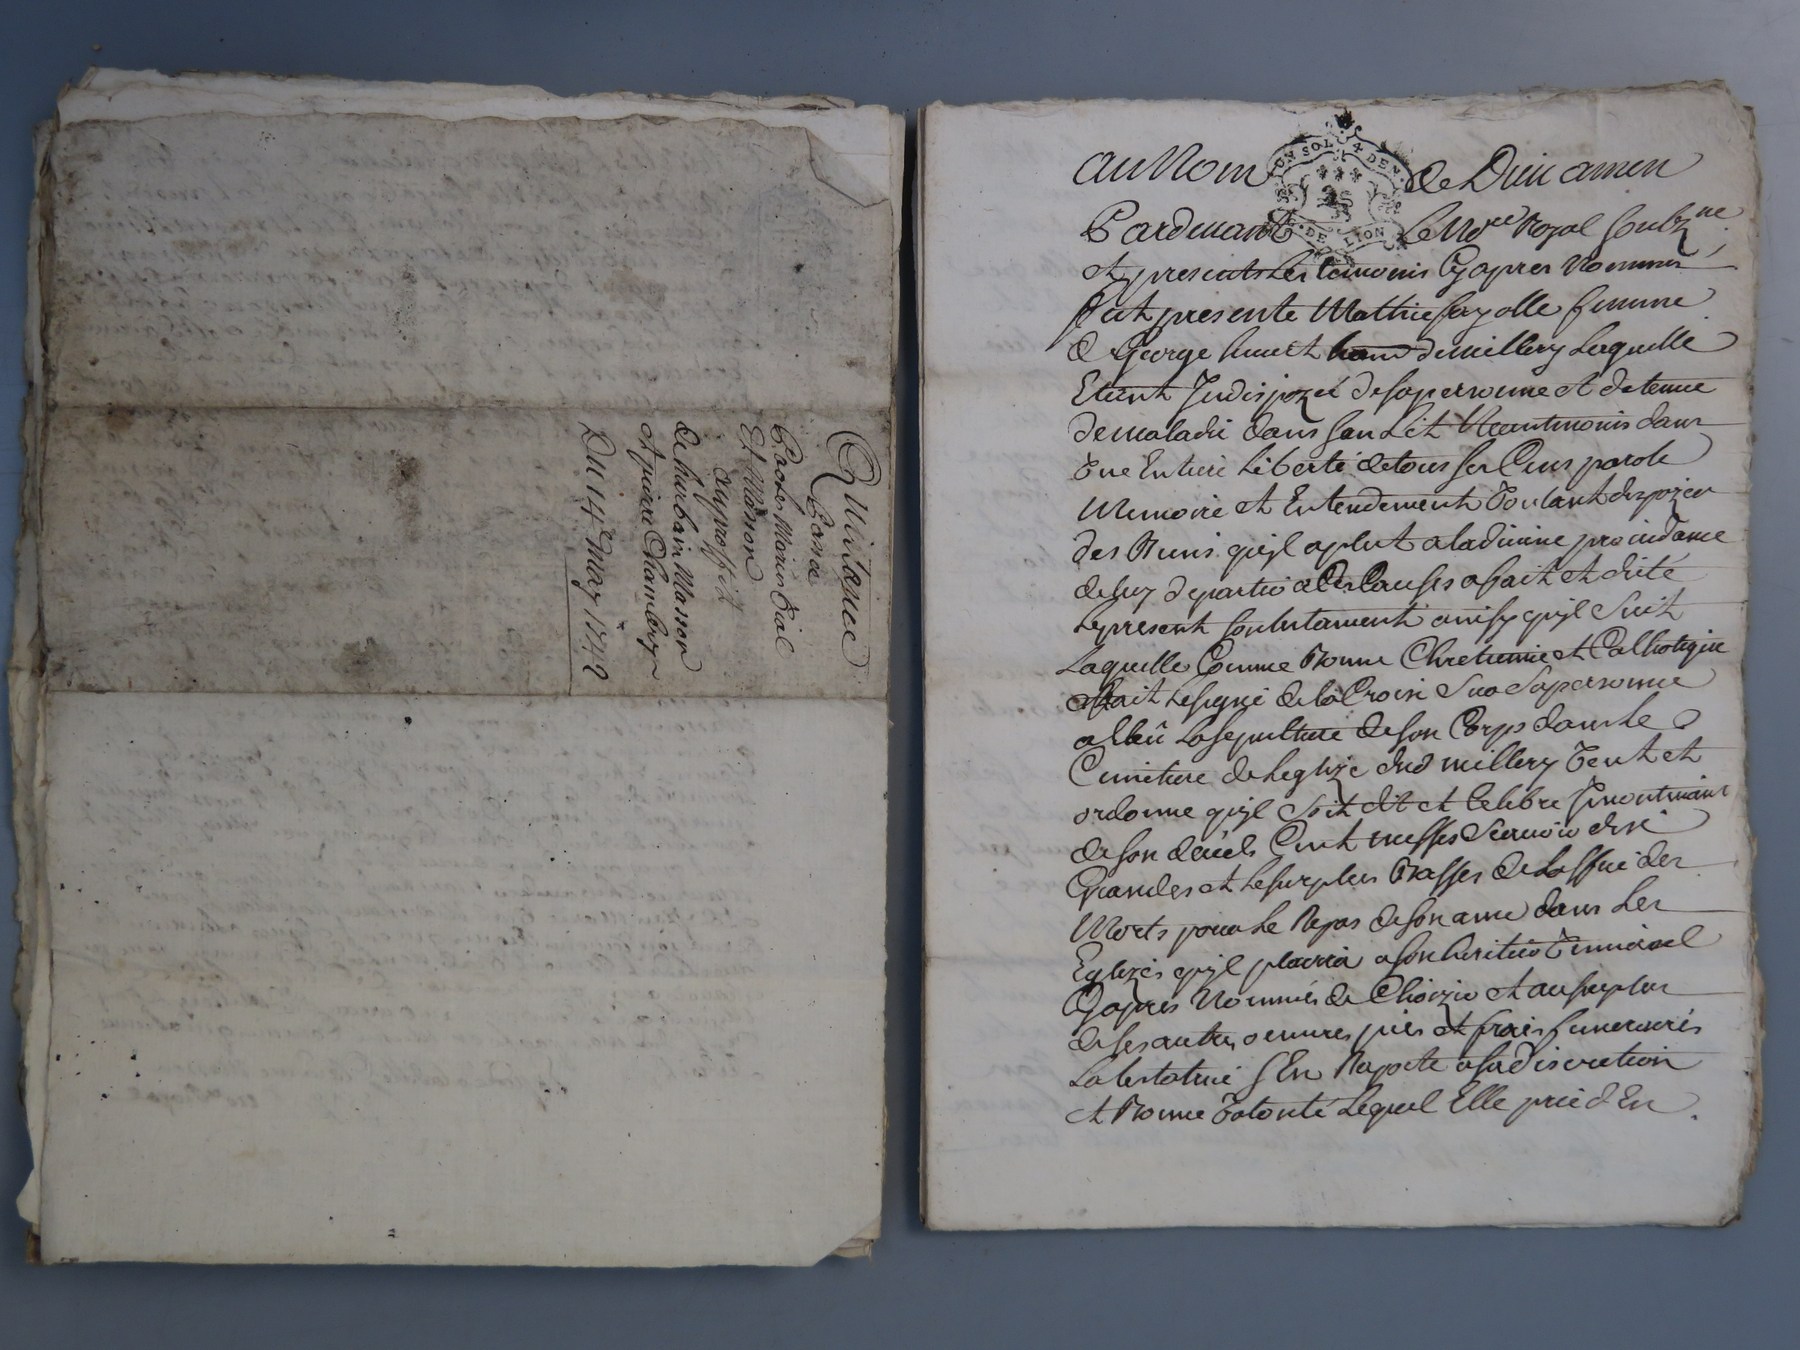 Quittance
Passée
Par les Marien Vial
Et Manon
Au proffit
de hurbain Masson
et pierre Chambry
Du 14e May 1742
au Nom de Dieu amen
UN SOL 4 DEN
DE LION
Pardevant Le Nore Royal soubzne
et presents Les temoins Cy apres Nommes
fut presente Mathie fayolle femme
de George de millery Laquelle
Etant Indisposeé de sa personne et detenue
de maladie dans son Lit Neantmoins dans
une Entiere Liberté de tous ses Cens parole
Memoire et Entendement Voulant disposer
des Biens qu'jl a plut a la divine providance
de luy departir a Ces Causes a fait et dicté
Le present son testament ainsy qu'jl Suit
Laquelle Comme Bonne Chretienne et Catholique
a fait Le signe de la Croix Sur Sa personne
a Elleû La sepulture de son Corps dans Le
Cimetiere de Leglize dud millery Veut et
ordonne qu'jl Soit dit et Celebre
de son déceds Cent messes Scavoir dix
Grandes et Le surplus Basses de Loffice des
Morts pour Le Repos de son ame dans Les
Eglizes qu'jl plaira a son heritier Vniversel
Cy apres Nommés de Choizir et au surplus
de ses autres oeuvres pies et frais funeraires
La testatrice s'En Raporte a sa discretion
et Bonne Volonté Lequel Elle prie d'En